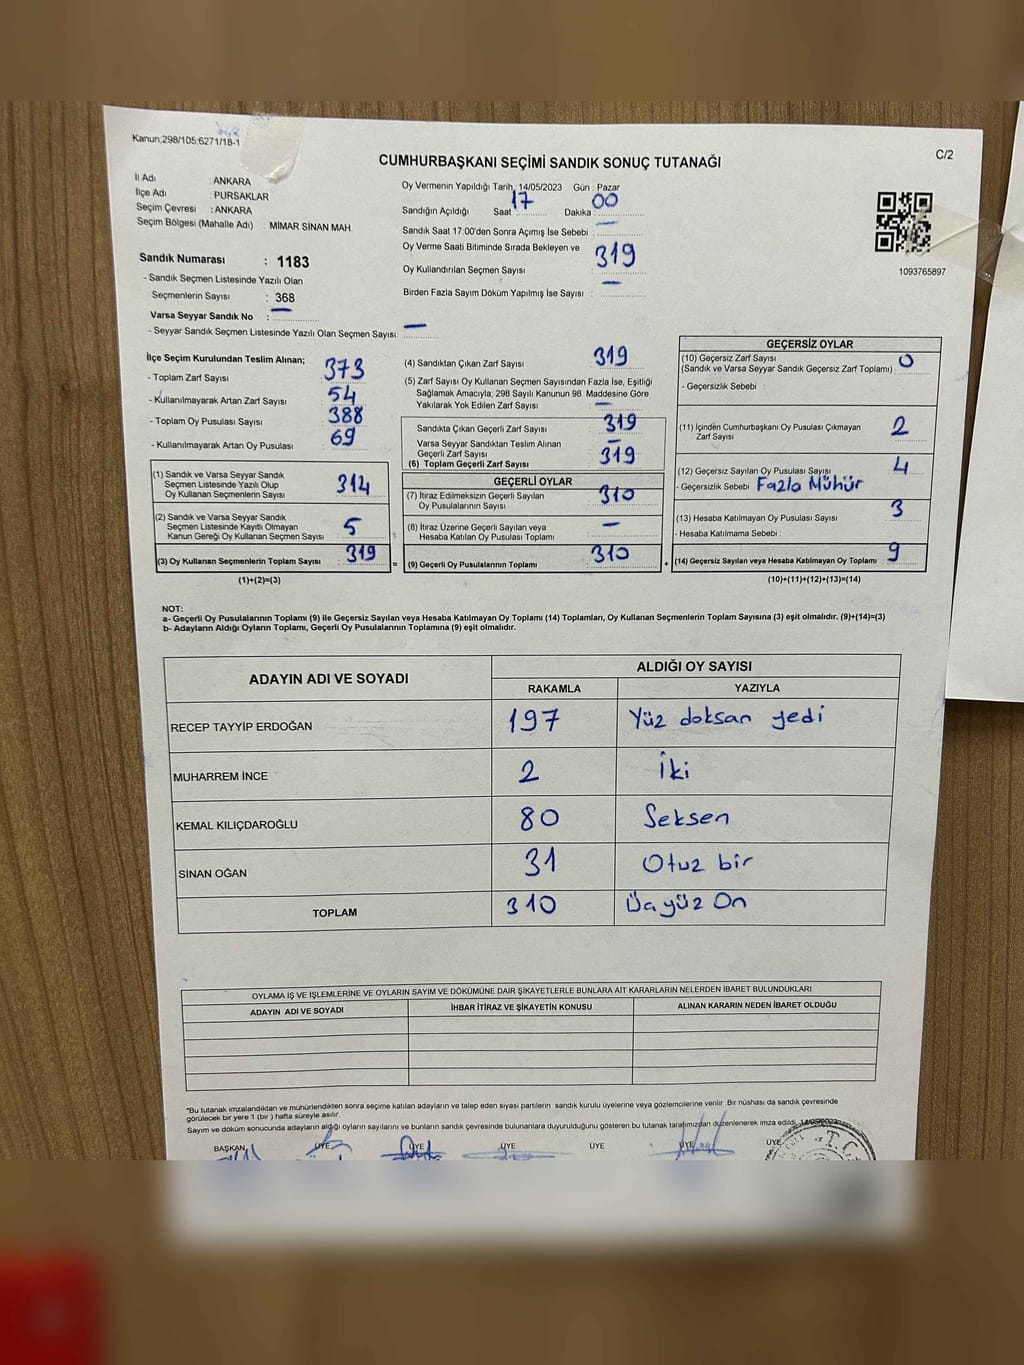 Kanun;298/105;6271/18-1
CUMHURBAŞKANI SEÇİMİ SANDIK SONUÇ TUTANAĞI
C/2
İl Adı : ANKARA
İlçe Adı : PURSAKLAR
Seçim Çevresi : ANKARA
Seçim Bölgesi (Mahalle Adı) : MİMAR SİNAN MAH.
Sandık Numarası : 1183
- Sandık Seçmen Listesinde Yazılı Olan
Seçmenlerin Sayısı : 368
Varsa Seyyar Sandık No : —
- Seyyar Sandık Seçmen Listesinde Yazılı Olan Seçmen Sayısı: —
Oy Vermenin Yapıldığı Tarih: 14/05/2023 Gün : Pazar
Sandığın Açıldığı Saat 17 Dakika 00
Sandık Saat 17:00'den Sonra Açımış İse Sebebi : —
Oy Verme Saati Bitiminde Sırada Bekleyen ve
Oy Kullandırılan Seçmen Sayısı : 319
Birden Fazla Sayım Döküm Yapılmış İse Sayısı : —
1093765897
İlçe Seçim Kurulundan Teslim Alınan;
- Toplam Zarf Sayısı : 373
- Kullanılmayarak Artan Zarf Sayısı : 54
- Toplam Oy Pusulası Sayısı : 388
- Kullanılmayarak Artan Oy Pusulası : 69
(1) Sandık ve Varsa Seyyar Sandık
Seçmen Listesinde Yazılı Olup
Oy Kullanan Seçmenlerin Sayısı : 314
(2) Sandık ve Varsa Seyyar Sandık
Seçmen Listesinde Kayıtlı Olmayan
Kanun Gereği Oy Kullanan Seçmen Sayısı : 5
(3) Oy Kullanan Seçmenlerin Toplam Sayısı : 319
(1)+(2)=(3)
(4) Sandıktan Çıkan Zarf Sayısı : 319
(5) Zarf Sayısı Oy Kullanan Seçmen Sayısından Fazla İse, Eşitliği
Sağlamak Amacıyla, 298 Sayılı Kanunun 98. Maddesine Göre
Yakılarak Yok Edilen Zarf Sayısı : —
Sandıkta Çıkan Geçerli Zarf Sayısı : 319
Varsa Seyyar Sandıktan Teslim Alınan
Geçerli Zarf Sayısı : —
(6) Toplam Geçerli Zarf Sayısı : 319
GEÇERLİ OYLAR
(7) İtiraz Edilmeksizin Geçerli Sayılan
Oy Pusulalarının Sayısı : 310
(8) İtiraz Üzerine Geçerli Sayılan veya
Hesaba Katılan Oy Pusulası Toplamı : —
= (9) Geçerli Oy Pusulalarının Toplamı : 310
GEÇERSİZ OYLAR
(10) Geçersiz Zarf Sayısı
(Sandık ve Varsa Seyyar Sandık Geçersiz Zarf Toplamı) : 0
- Geçersizlik Sebebi :
(11) İçinden Cumhurbaşkanı Oy Pusulası Çıkmayan
Zarf Sayısı : 2
(12) Geçersiz Sayılan Oy Pusulası Sayısı : 4
- Geçersizlik Sebebi : Fazla Mühür
(13) Hesaba Katılmayan Oy Pusulası Sayısı : 3
- Hesaba Katılmama Sebebi :
+ (14) Geçersiz Sayılan veya Hesaba Katılmayan Oy Toplamı : 9
(10)+(11)+(12)+(13)=(14)
NOT:
a- Geçerli Oy Pusulalarının Toplamı (9) ile Geçersiz Sayılan veya Hesaba Katılmayan Oy Toplamı (14) Toplamları, Oy Kullanan Seçmenlerin Toplam Sayısına (3) eşit olmalıdır. (9)+(14)=(3)
b- Adayların Aldığı Oyların Toplamı, Geçerli Oy Pusulalarının Toplamına (9) eşit olmalıdır.
ADAYIN ADI VE SOYADI ALDIĞI OY SAYISI
RAKAMLA YAZIYLA
RECEP TAYYİP ERDOĞAN 197 Yüz doksan yedi
MUHARREM İNCE 2 İki
KEMAL KILIÇDAROĞLU 80 Seksen
SİNAN OĞAN 31 Otuz bir
TOPLAM 310 Üçyüz On
OYLAMA İŞ VE İŞLEMLERİNE VE OYLARIN SAYIM VE DÖKÜMÜNE DAİR ŞİKAYETLERLE BUNLARA AİT KARARLARIN NELERDEN İBARET BULUNDUKLARI
ADAYIN ADI VE SOYADI İHBAR İTİRAZ VE ŞİKAYETİN KONUSU ALINAN KARARIN NEDEN İBARET OLDUĞU
*Bu tutanak imzalandıktan ve mühürlendikten sonra seçime katılan adayların ve talep eden siyasi partilerin sandık kurulu üyelerine veya gözlemcilerine verilir. Bir nüshası da sandık çevresinde
görülecek bir yere 1 (bir ) hafta süreyle asılır.
Sayım ve döküm sonucunda adayların aldığı oyların sayılarını ve bunların sandık çevresinde bulunanlara duyurulduğunu gösteren bu tutanak tarafımızdan düzenlenerek imza edildi.
BAŞKAN ÜYE ÜYE ÜYE ÜYE ÜYE ÜYE
T.C.